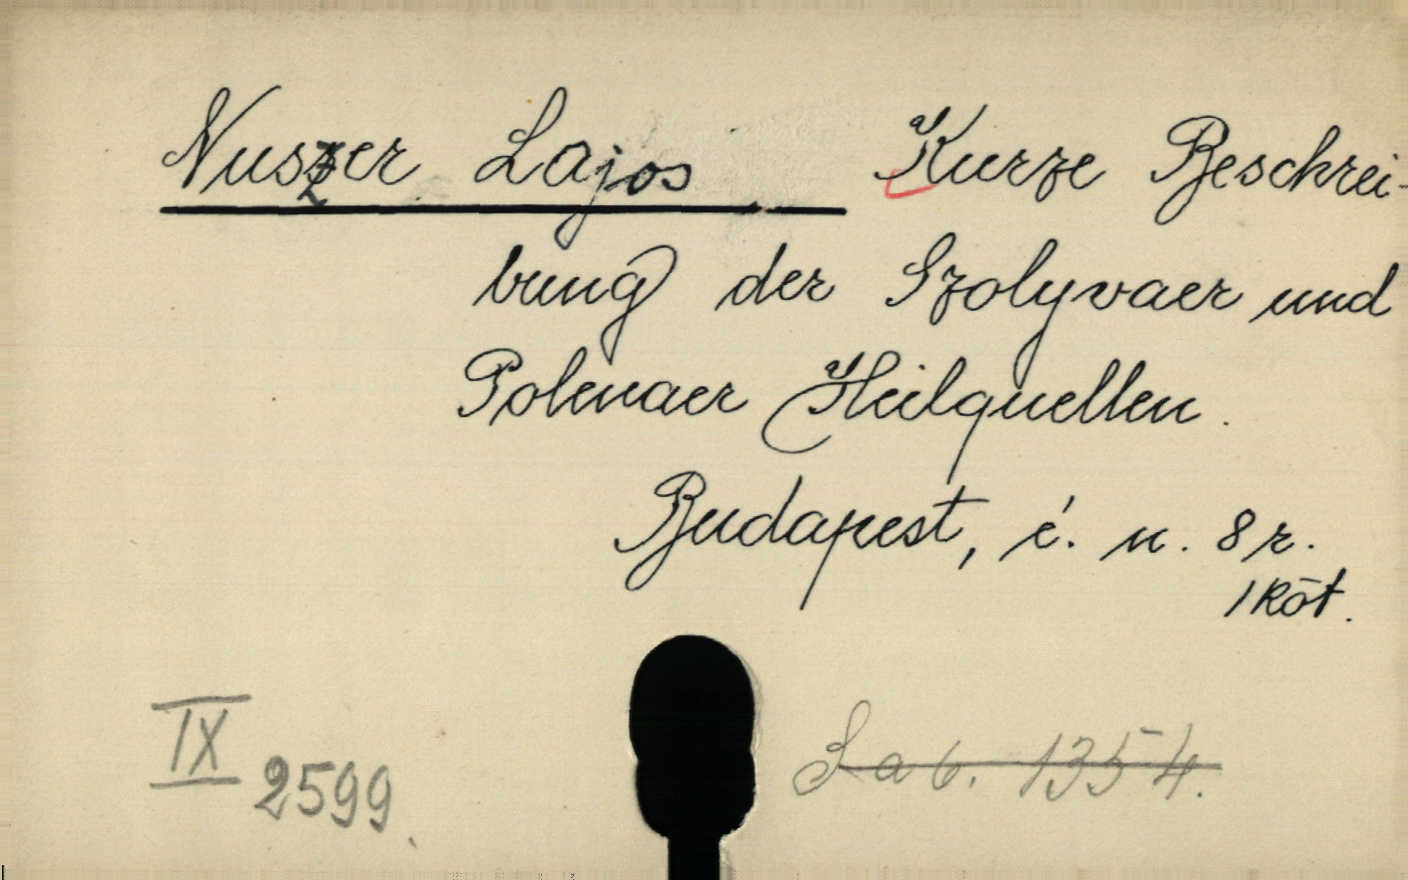 Nuszer Lajos Kurze Beschrei-
bung der Szolyvaer und
Polenaer Heilquellen.
Budapest, é. n. 8 r.
1 köt.
IX 2599.
Lab. 1354.